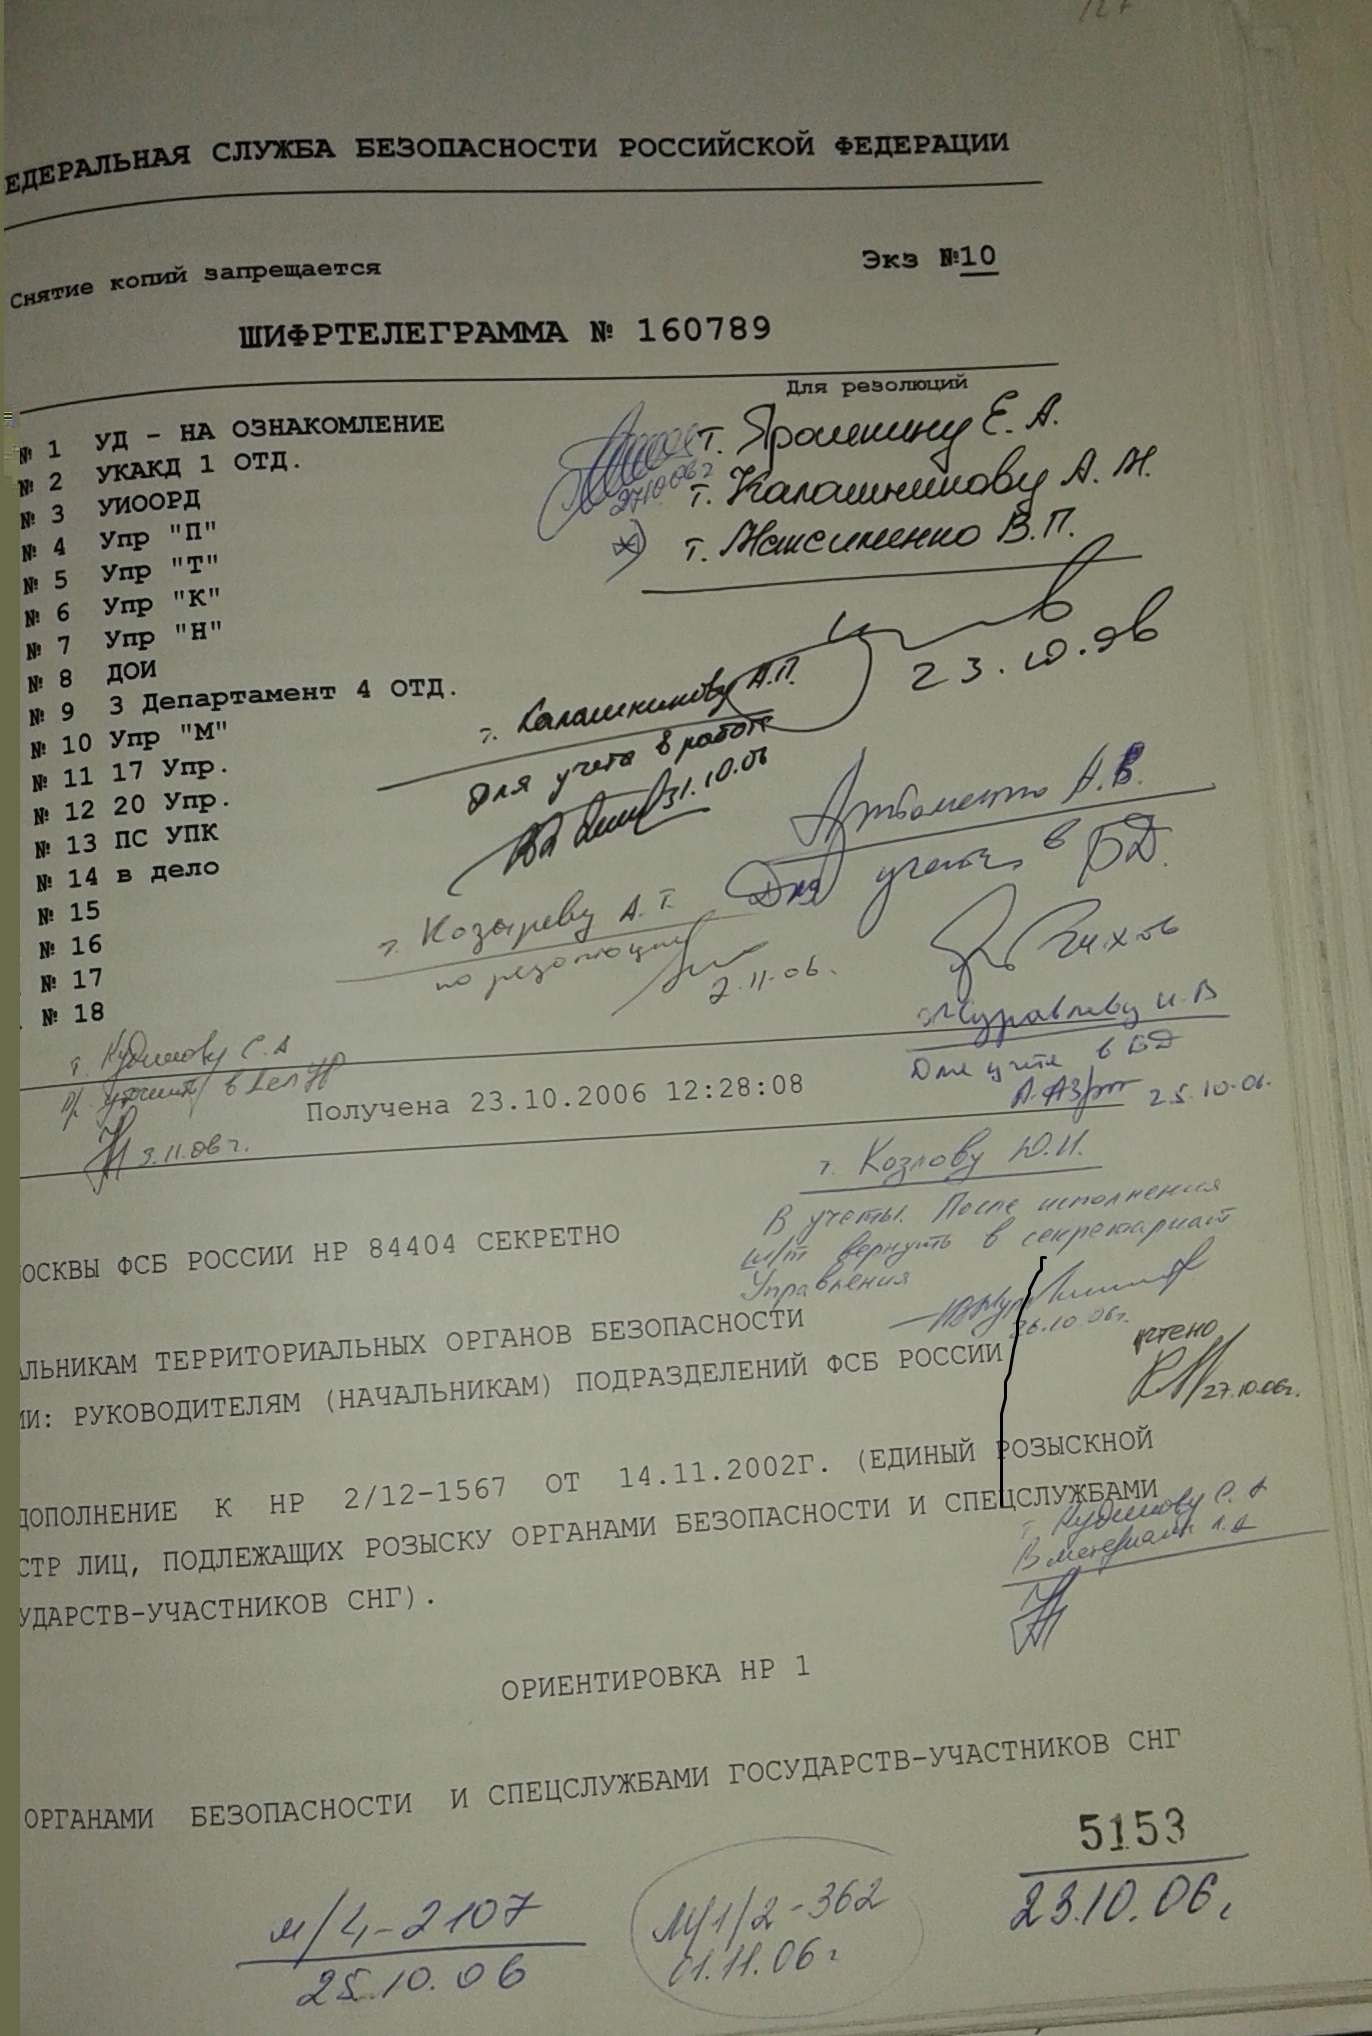 ЕДЕРАЛЬНАЯ СЛУЖБА БЕЗОПАСНОСТИ РОССИЙСКОЙ ФЕДЕРАЦИИ
Снятие копий запрещается
Экз №10
ШИФРТЕЛЕГРАММА № 160789
Для резолюций
№ 1 УД - НА ОЗНАКОМЛЕНИЕ
№ 2 УКАКД 1 ОТД.
№ 3 УИООРД
№ 4 Упр "П"
№ 5 Упр "Т"
№ 6 Упр "К"
№ 7 Упр "Н"
№ 8 ДОИ
№ 9 3 Департамент 4 ОТД.
№ 10 Упр "М"
№ 11 17 Упр.
№ 12 20 Упр.
№ 13 ПС УПК
№ 14 в дело
№ 15
№ 16
№ 17
№ 18
т. Ярошкину Е. А.
т. Калашникову А.
т. Максименко В.П.
27.10.06г
23.10.06
т. Калашникову А.П.
Для учета в работе
31.10.06
А.В.
Для учета в БД.
т. Козыреву А. Т.
по резолюции
2.11.06.
Журавлеву И. В
Для учета в БД
25.10.06.
т. Кудимову С. А
в дел
3.11.06г.
Получена 23.10.2006 12:28:08
т. Козлову Ю.И.
В учеты. После исполнения
ш/т вернуть в секретариат
Управления
26.10.06г.
учтено
27.10.06г.
ОСКВЫ ФСБ РОССИИ НР 84404 СЕКРЕТНО
АЛЬНИКАМ ТЕРРИТОРИАЛЬНЫХ ОРГАНОВ БЕЗОПАСНОСТИ
ИИ: РУКОВОДИТЕЛЯМ (НАЧАЛЬНИКАМ) ПОДРАЗДЕЛЕНИЙ ФСБ РОССИИ
ДОПОЛНЕНИЕ К НР 2/12-1567 ОТ 14.11.2002Г. (ЕДИНЫЙ РОЗЫСКНОЙ
СТР ЛИЦ, ПОДЛЕЖАЩИХ РОЗЫСКУ ОРГАНАМИ БЕЗОПАСНОСТИ И СПЕЦСЛУЖБАМИ
УДАРСТВ-УЧАСТНИКОВ СНГ).
т. Кудимову С. А
В материалы
ОРИЕНТИРОВКА НР 1
ОРГАНАМИ БЕЗОПАСНОСТИ И СПЕЦСЛУЖБАМИ ГОСУДАРСТВ-УЧАСТНИКОВ СНГ
5153
23.10.06г
м/4-2107
25.10.06
М/1/2-362
01.11.06г